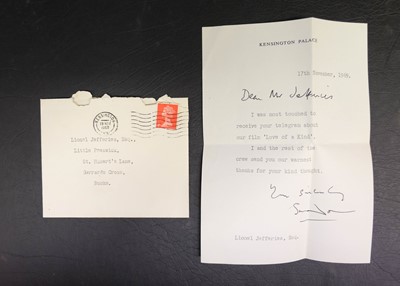 KENSINGTON PALACE
17th November, 1969.
Dear Mr Jefferies
I was most touched to
receive your telegram about
our film 'Love of a Kind'.
I and the rest of the
crew send you our warmest
thanks for your kind thought.
Yours sincerely
Snowdon
Lionel Jefferies, Esq.
KENSINGTON
1969
Lionel Jefferies, Esq.,
Little
St.
Green,